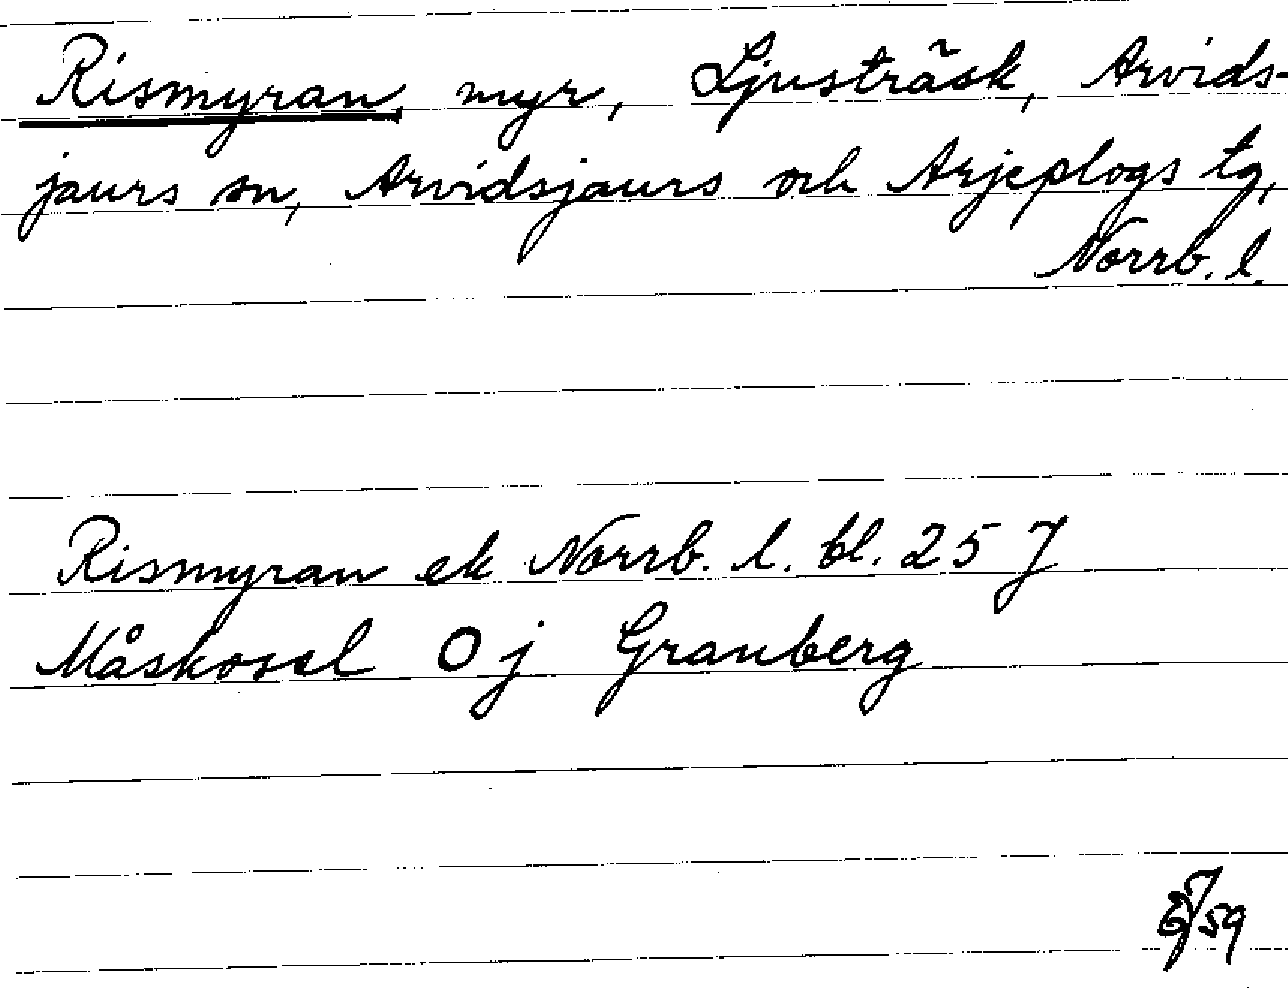 Rismyran, myr, Ljusträsk, Arvids-
jaurs sn, Arvidsjaurs och Arjeplogs tg,
Norrb. l.
Rismyran ek Norrb. l. bl. 25 J
Måskosel O j Granberg